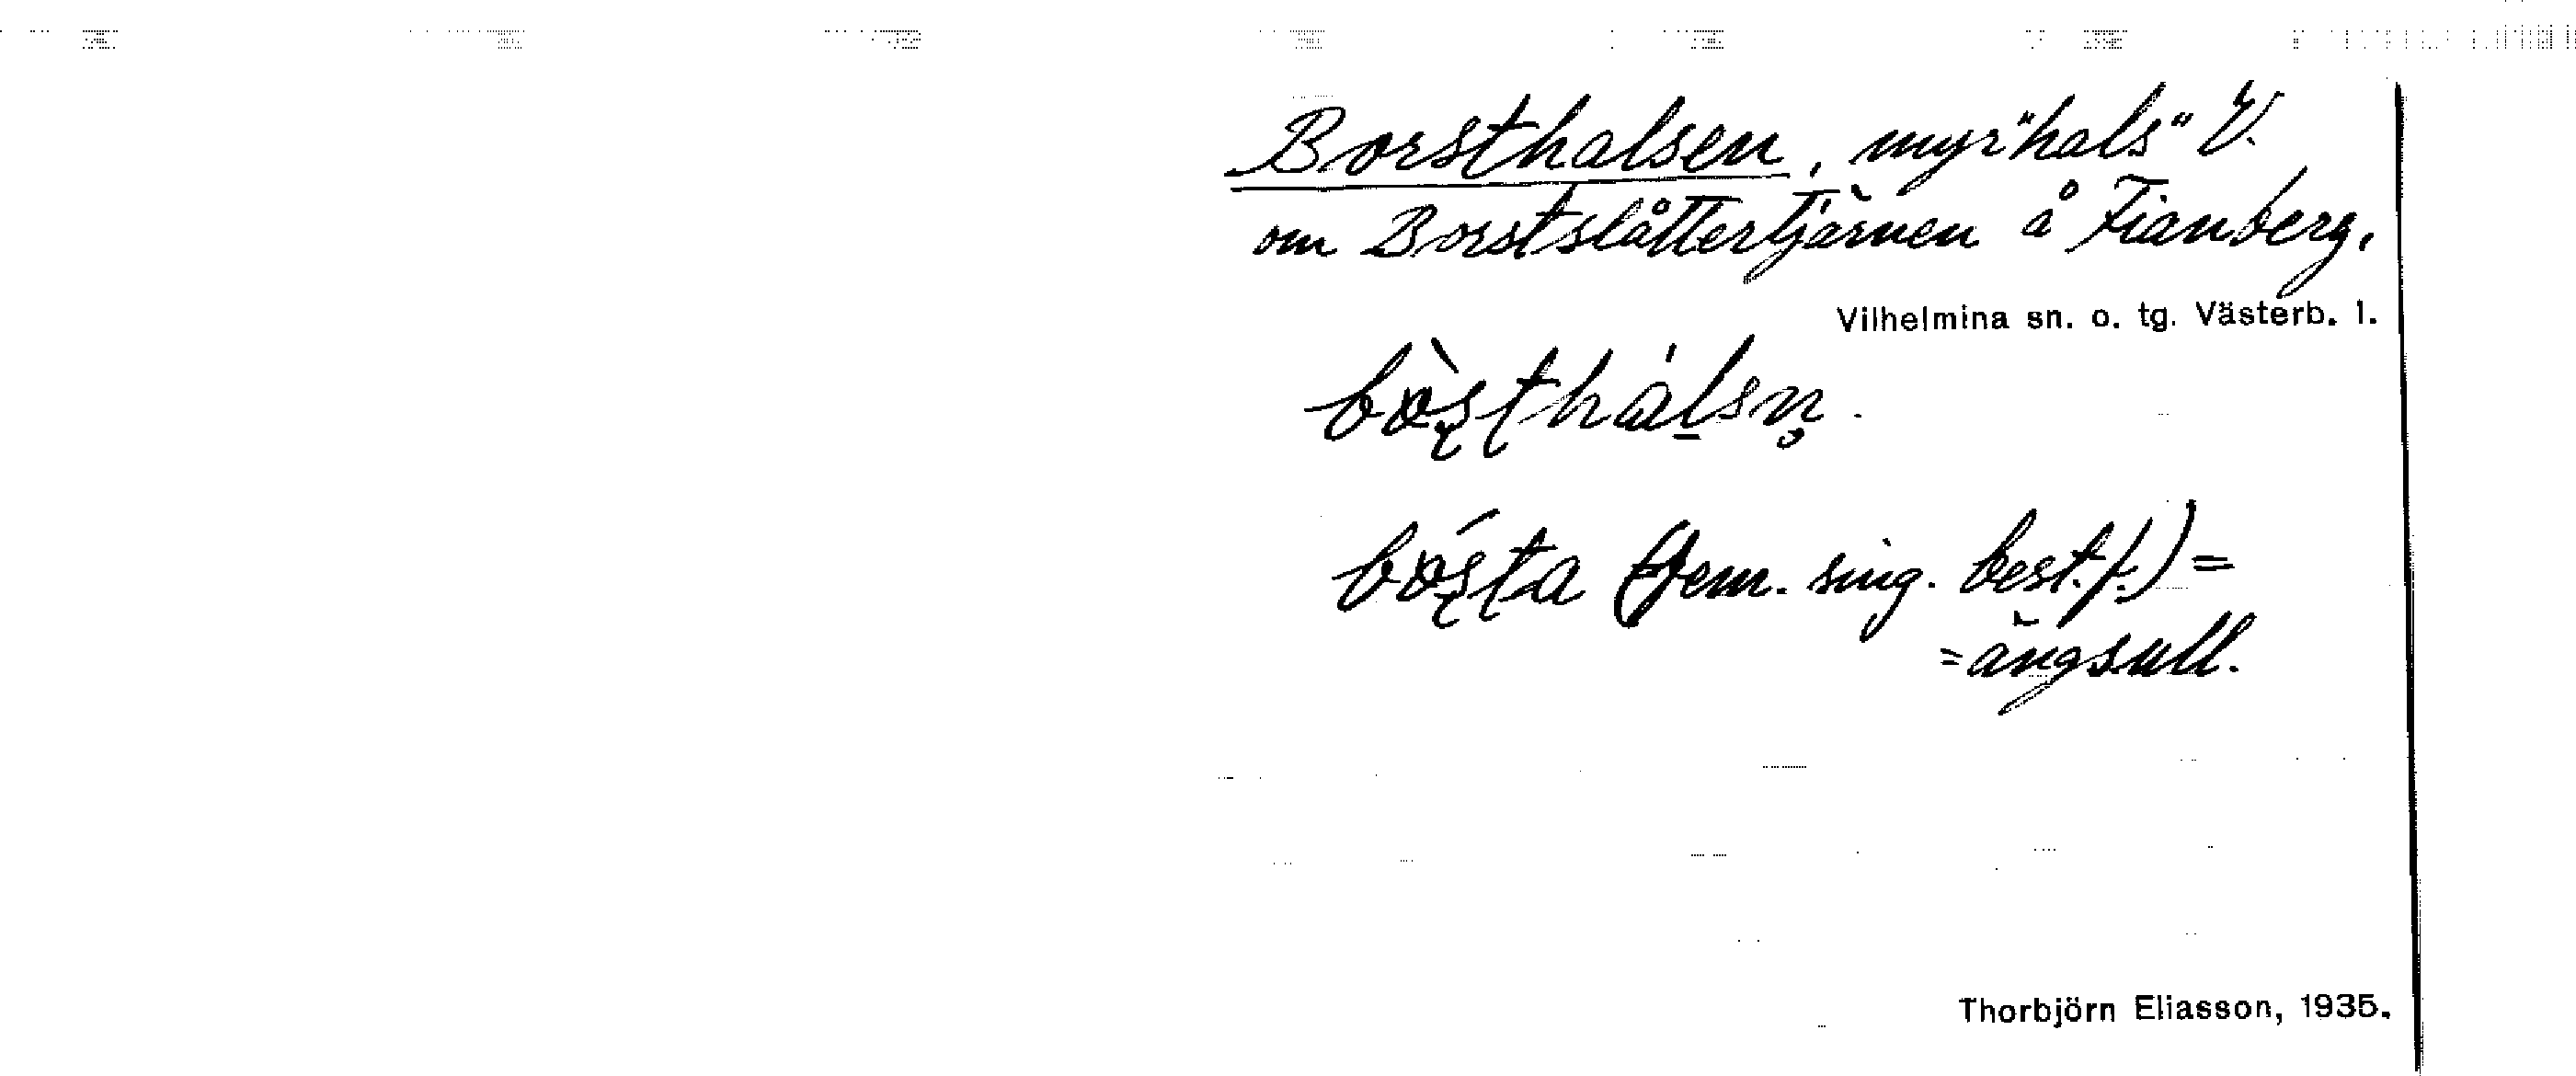 Borsthalsen, myr"hals" V.
om Borstslåttertjärnen å Fianberg,
Vilhelmina sn. o. tg. Västerb. l.
bòsthálsn̥.
bósta (fem. sing. best. f.) =
= ängsull.
Thorbjörn Eliasson, 1935.